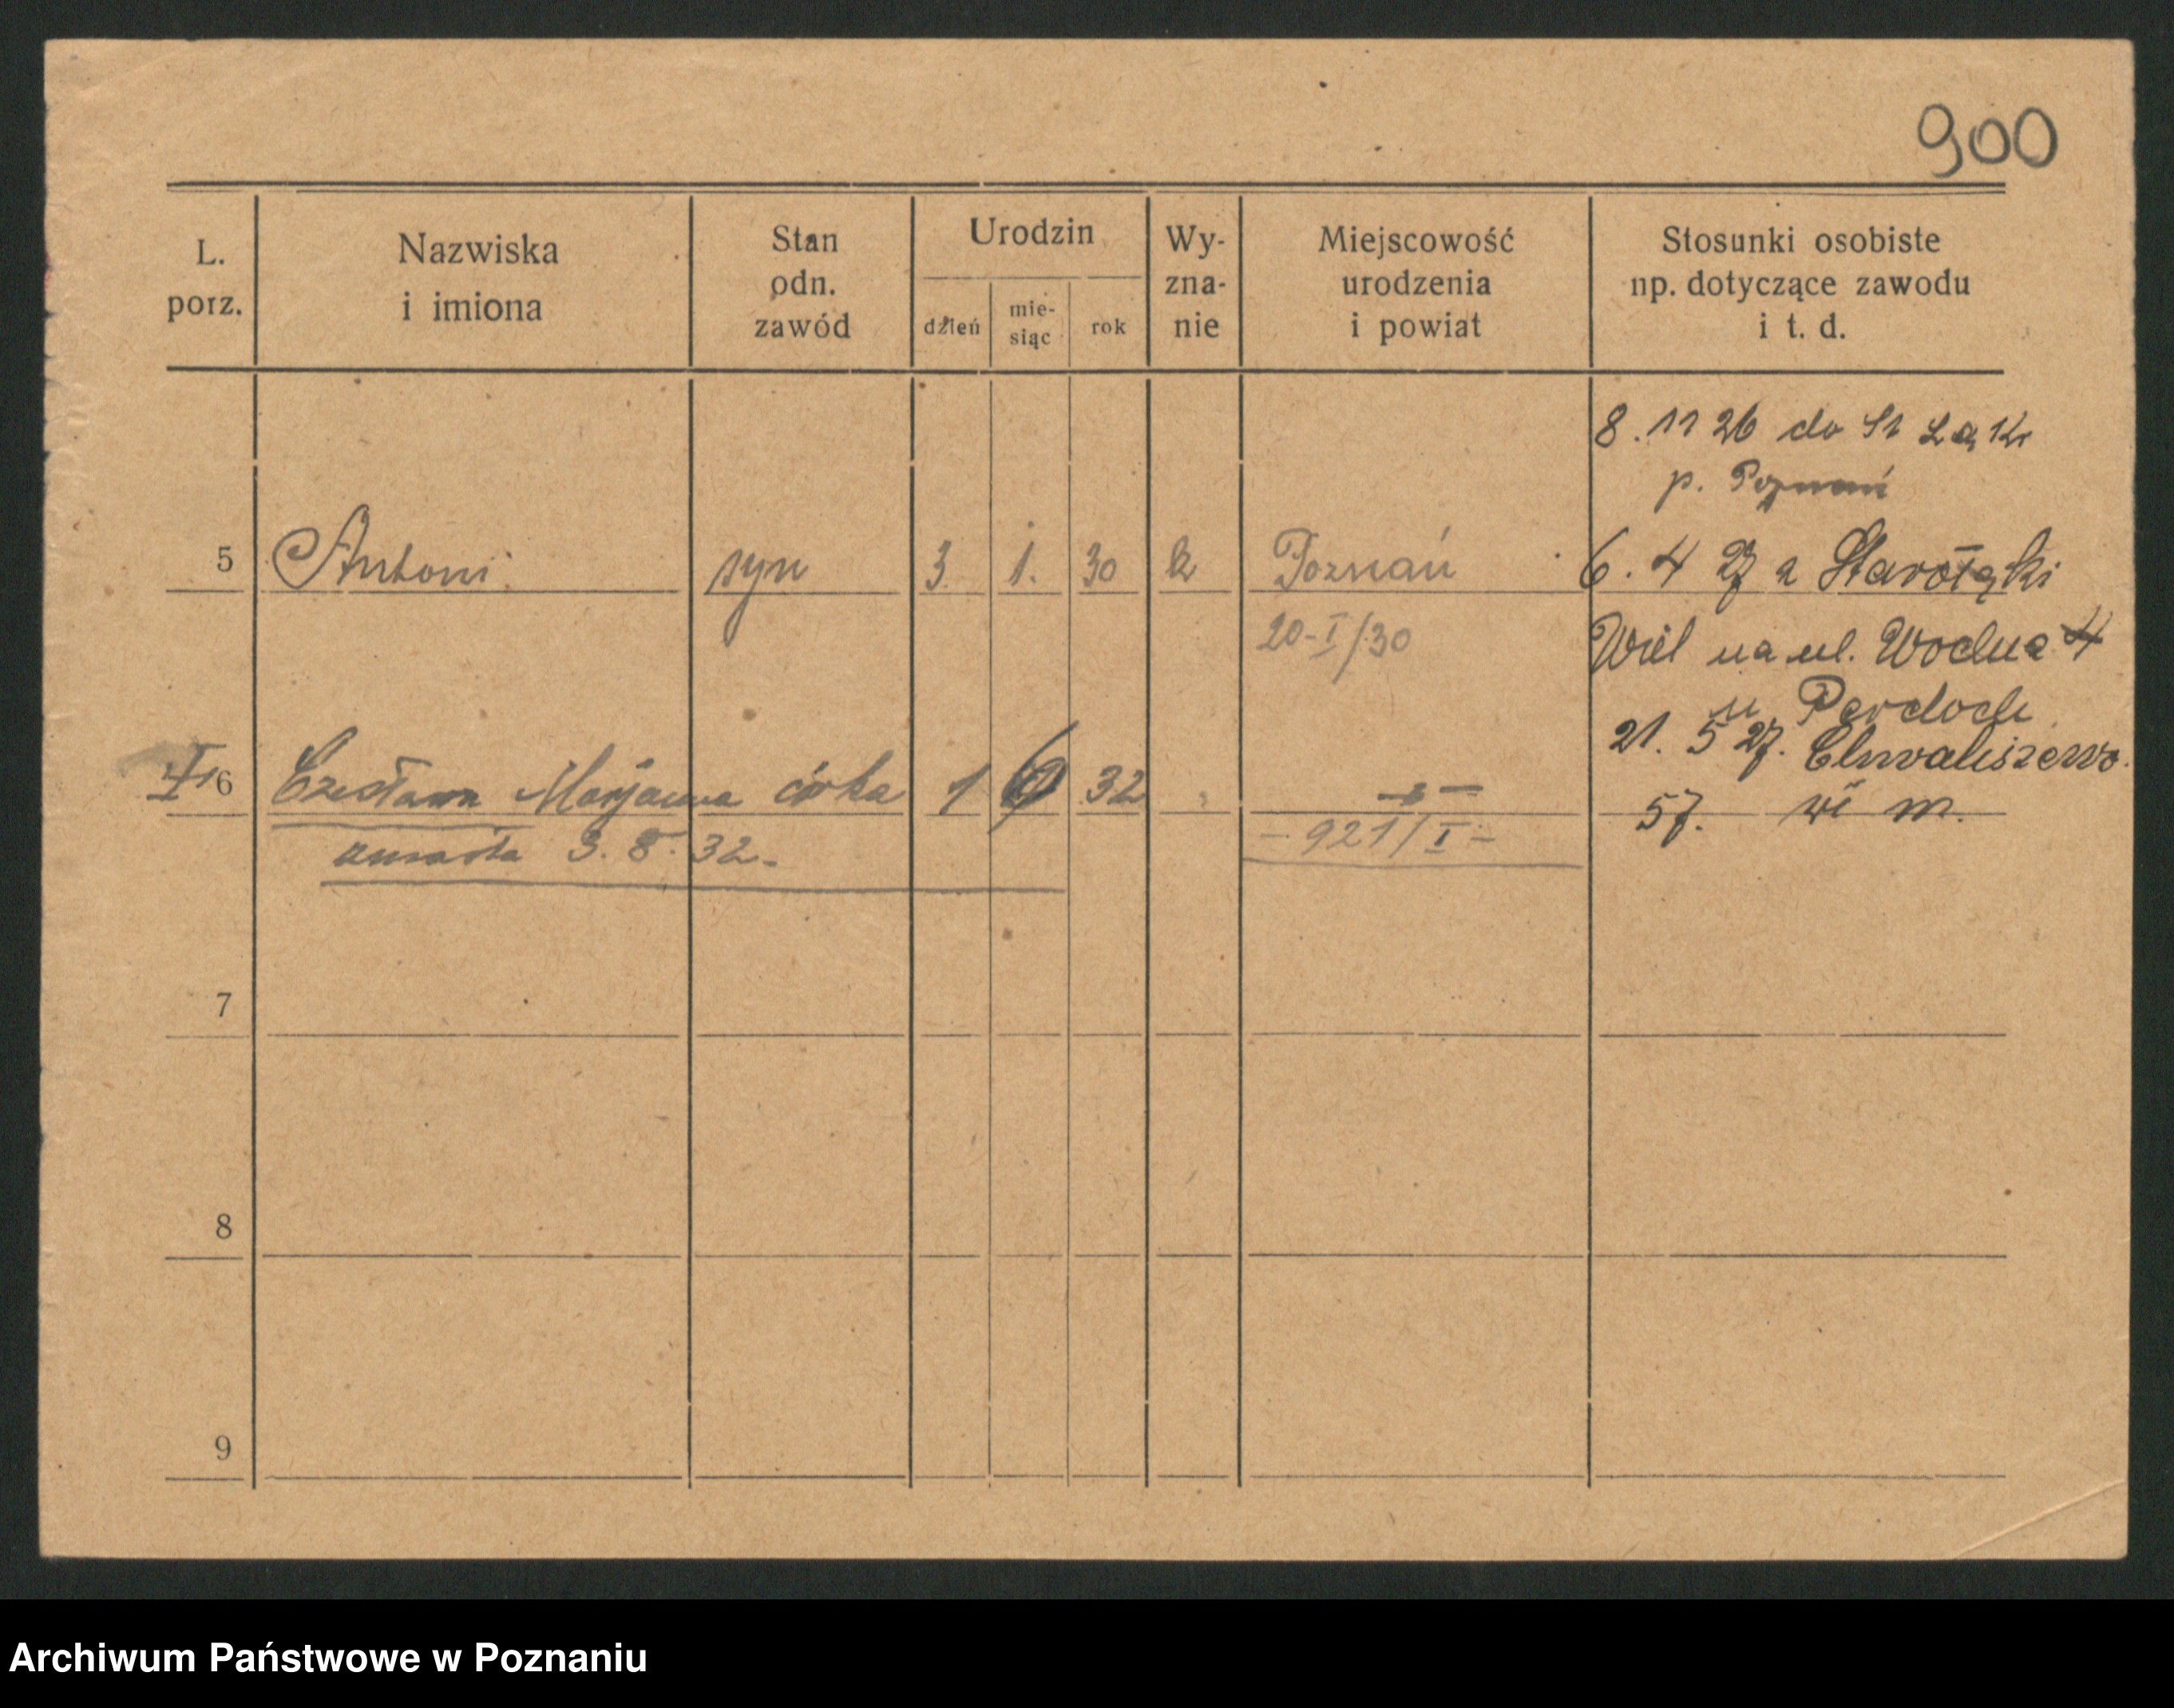 900
L. porz.
Nazwiska i imiona
Stan odn. zawód
Urodzin
dzień
mie-siąc
rok
Wy-zna-nie
Miejscowość urodzenia i powiat
Stosunki osobiste np. dotyczące zawodu i t. d.
8. 11 26 do St Łąki
p. Poznań
5 Antoni syn 3. 1. 30 k Poznań
6. 4 27 z Starołęki
20-I/30
Wiel na ul. Wodna 4
u
21. 5 27. Chwaliszewo
6 Czesława Marjanna córka 1 32
57. m.
zmarła 3. 8. 32.-
- 921/I -
7
8
9
Archiwum Państwowe w Poznaniu